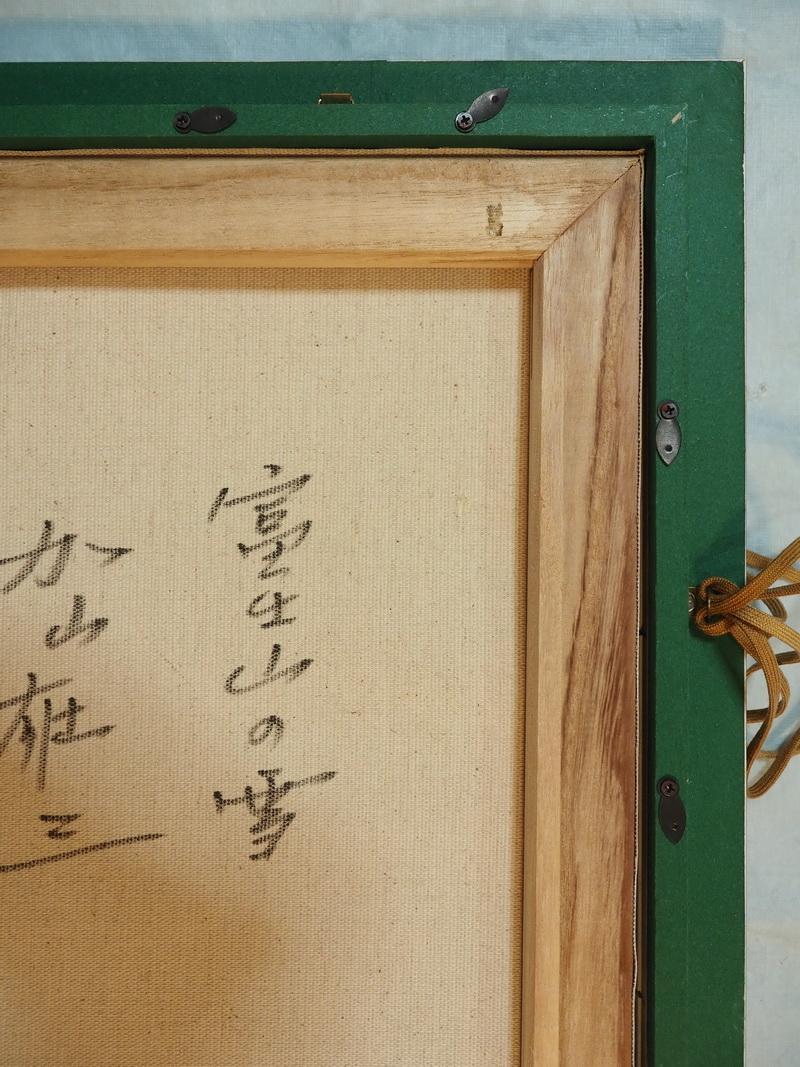 富士山の雪
加山雄三